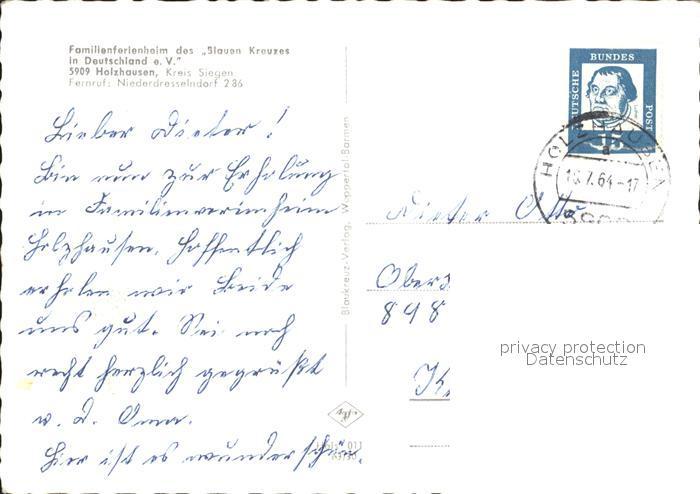 Familienferienheim des „Blauen Kreuzes
in Deutschland e. V."
5909 Holzhausen, Kreis Siegen
Fernruf: Niederdresselndorf 286
Lieber Dieter!
Bin nun zur Erholung
im Familienferienheim
Holzhausen. Hoffentlich
erholen wir beide
uns gut. Sei noch
recht herzlich gegrüßt
v. d. Oma.
Hier ist es wunderschön.
Blaukreuz-Verlag, Wuppertal-Barmen
DEUTSCHE
BUNDES
POST
15
HOLZHAUSEN
a
16.7.64-17
5909
Dieter
848
K.
privacy protection
Datenschutz